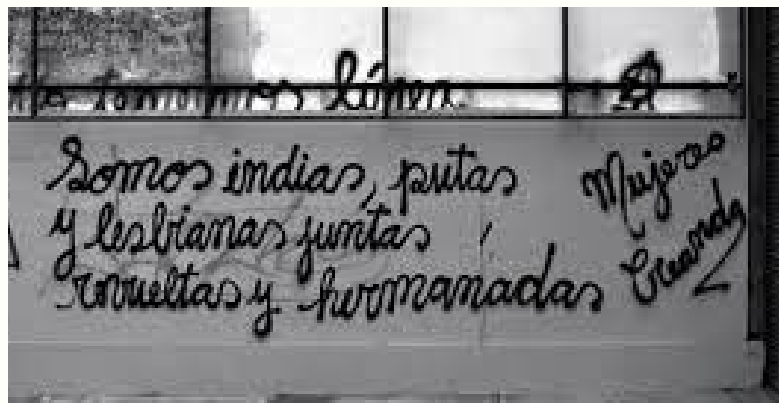 Somos indias, putas
y lesbianas juntas
revueltas y hermanadas
Mujeres
Creando